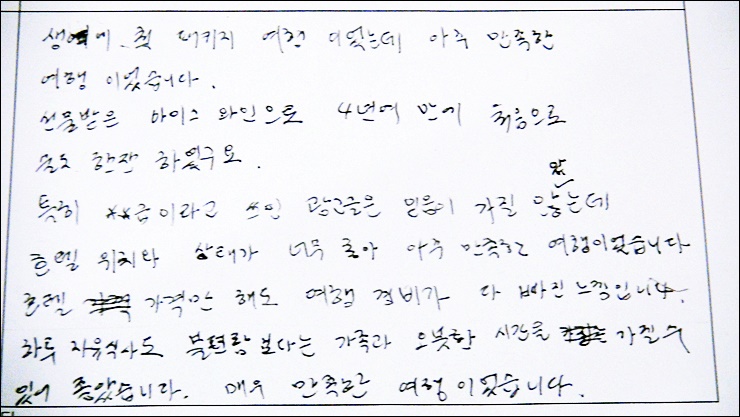 생애에 첫 패키지 여행 이었는데 아주 만족한
여행 이었습니다.
선물받은 아이스 와인으로 4년여 만에 처음으로
술도 한잔 하였구요.
특히 **급이라고 쓰인 광고글은 믿음이 가질 않았는데
호텔 위치와 상태가 너무 좋아 아주 만족한 여행이었습니다
호텔 가격만 해도 여행 경비가 다 빠진 느낌입니다.
하루 자유식사도 불편함보다는 가족과 오붓한 시간을 가질수
있어 좋았습니다. 매우 만족한 여행이었습니다.